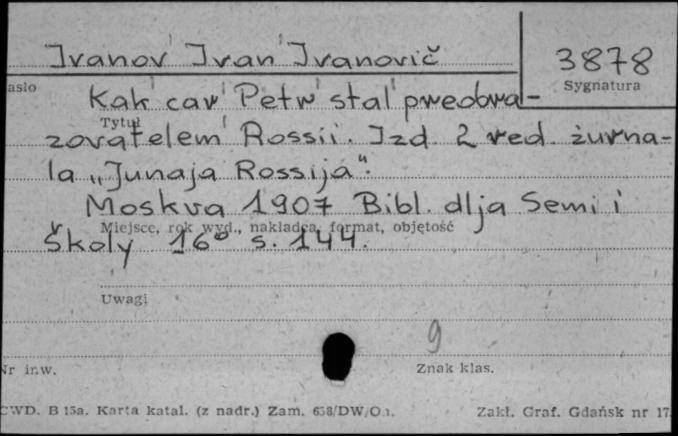 Ivanov Ivan Ivanovič
3878
asło
Sygnatura
Kak car' Petr' stal' preobra-
Tytuł
zovatelem' Rossii. Izd. 2 red. żurna-
la „Junaja Rossija".
Moskva 1907 Bibl. dlja Semi i
Miejsce, rok wyd., nakładca, format, objętość
Školy 16° s. 144.
Uwagi
9
Nr inw.
Znak klas.
CWD. B 15a. Karta katal. (z nadr.) Zam. 638/DW/O.
Zakł. Graf. Gdańsk nr 17